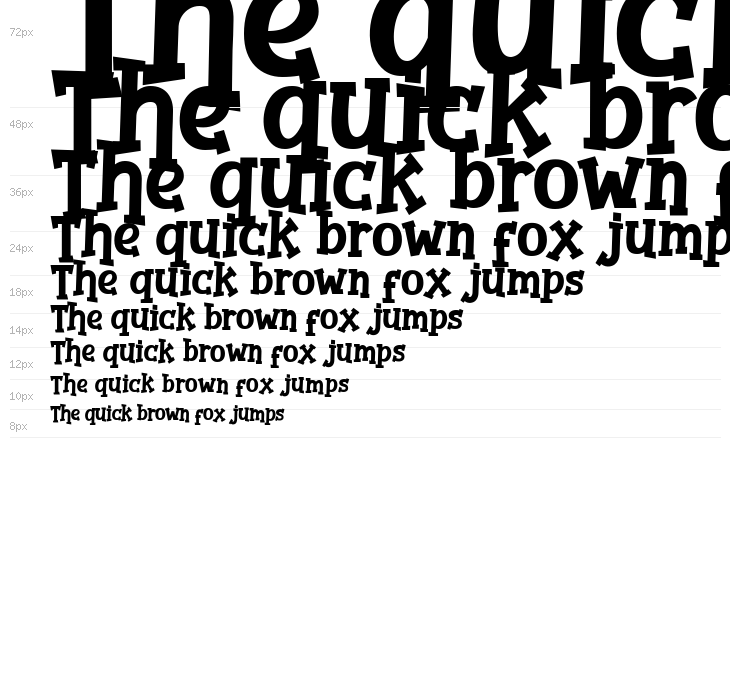 72px The quick
48px The quick bro
36px The quick brown f
24px The quick brown fox jump
18px The quick brown fox jumps
14px The quick brown fox jumps
12px The quick brown fox jumps
10px The quick brown fox jumps
8px The quick brown fox jumps